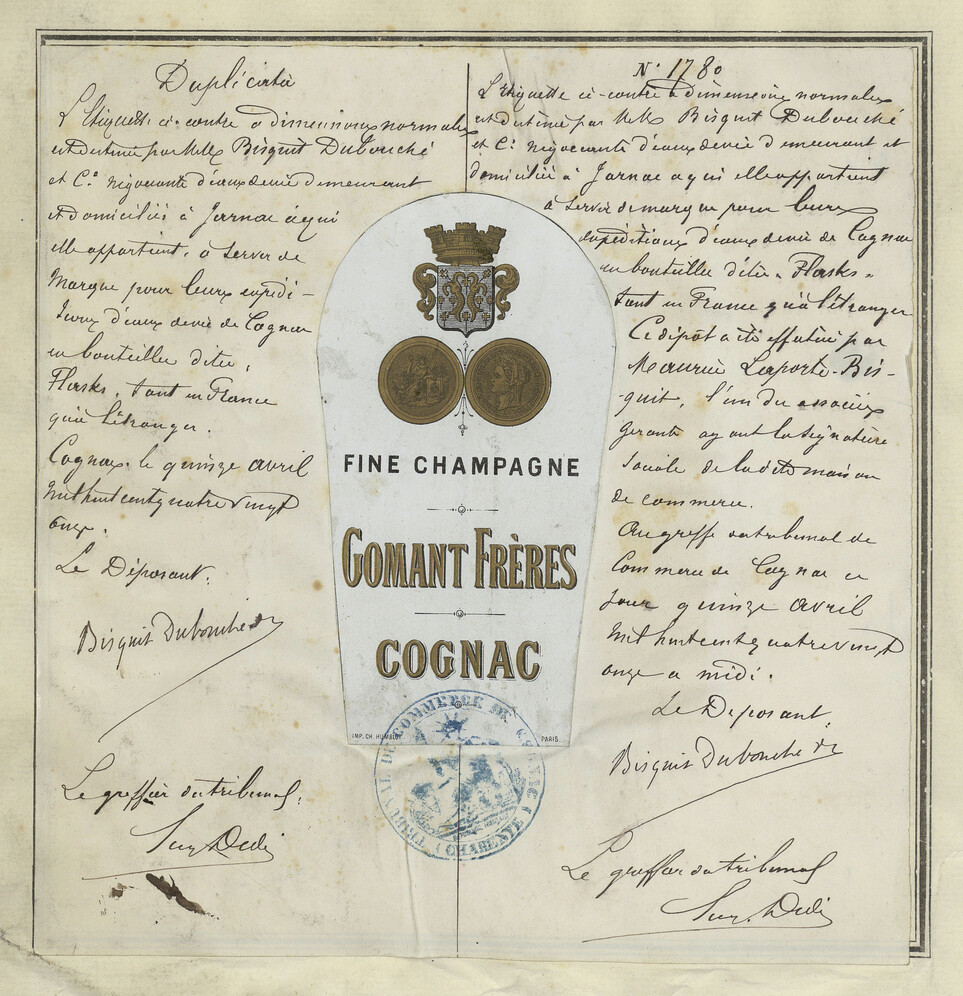 Duplicata
L'Etiquette ci-contre a dimensions normales
est destinée par MM Bisquit Dubouché
et Cie négociants d'eaux de vie demeurant
et domiciliés à Jarnac à qui
elle appartient, à servir de
Marque pour leurs expédi-
tions d'eaux de vie de Cognac
en bouteilles dites,
Flasks, tant en France
qu'à l'étranger.
Cognac, le quinze avril
mil huit cent quatre vingt
onze.
Le Déposant.
Bisquit Dubouché
Le greffier du tribunal,
N° 1780
L'Etiquette ci-contre à dimensions normales
est destinée par MM Bisquit Dubouché
et Cie négociants d'eaux de vie demeurant et
domiciliés à Jarnac à qui elle appartient
à servir de marque pour leurs
expéditions d'eaux de vie de Cognac
en bouteilles dites « Flasks »
tant en France qu'à l'étranger
Ce dépôt a été effectué par
Maurice Laporte-Bis-
quit, l'un des associés
gérants ayant la signature
sociale de la dite maison
de commerce.
Au greffe du tribunal de
Commerce de Cognac ce
jour quinze avril
mil huit cent quatre vingt
onze à midi.
Le Déposant,
Bisquit Dubouché
Le greffier du tribunal
FINE CHAMPAGNE
GOMANT FRÈRES
COGNAC
IMP. CH. HUMBLOT PARIS.
TRIBUNAL DU COMMERCE DE COGNAC (CHARENTE)